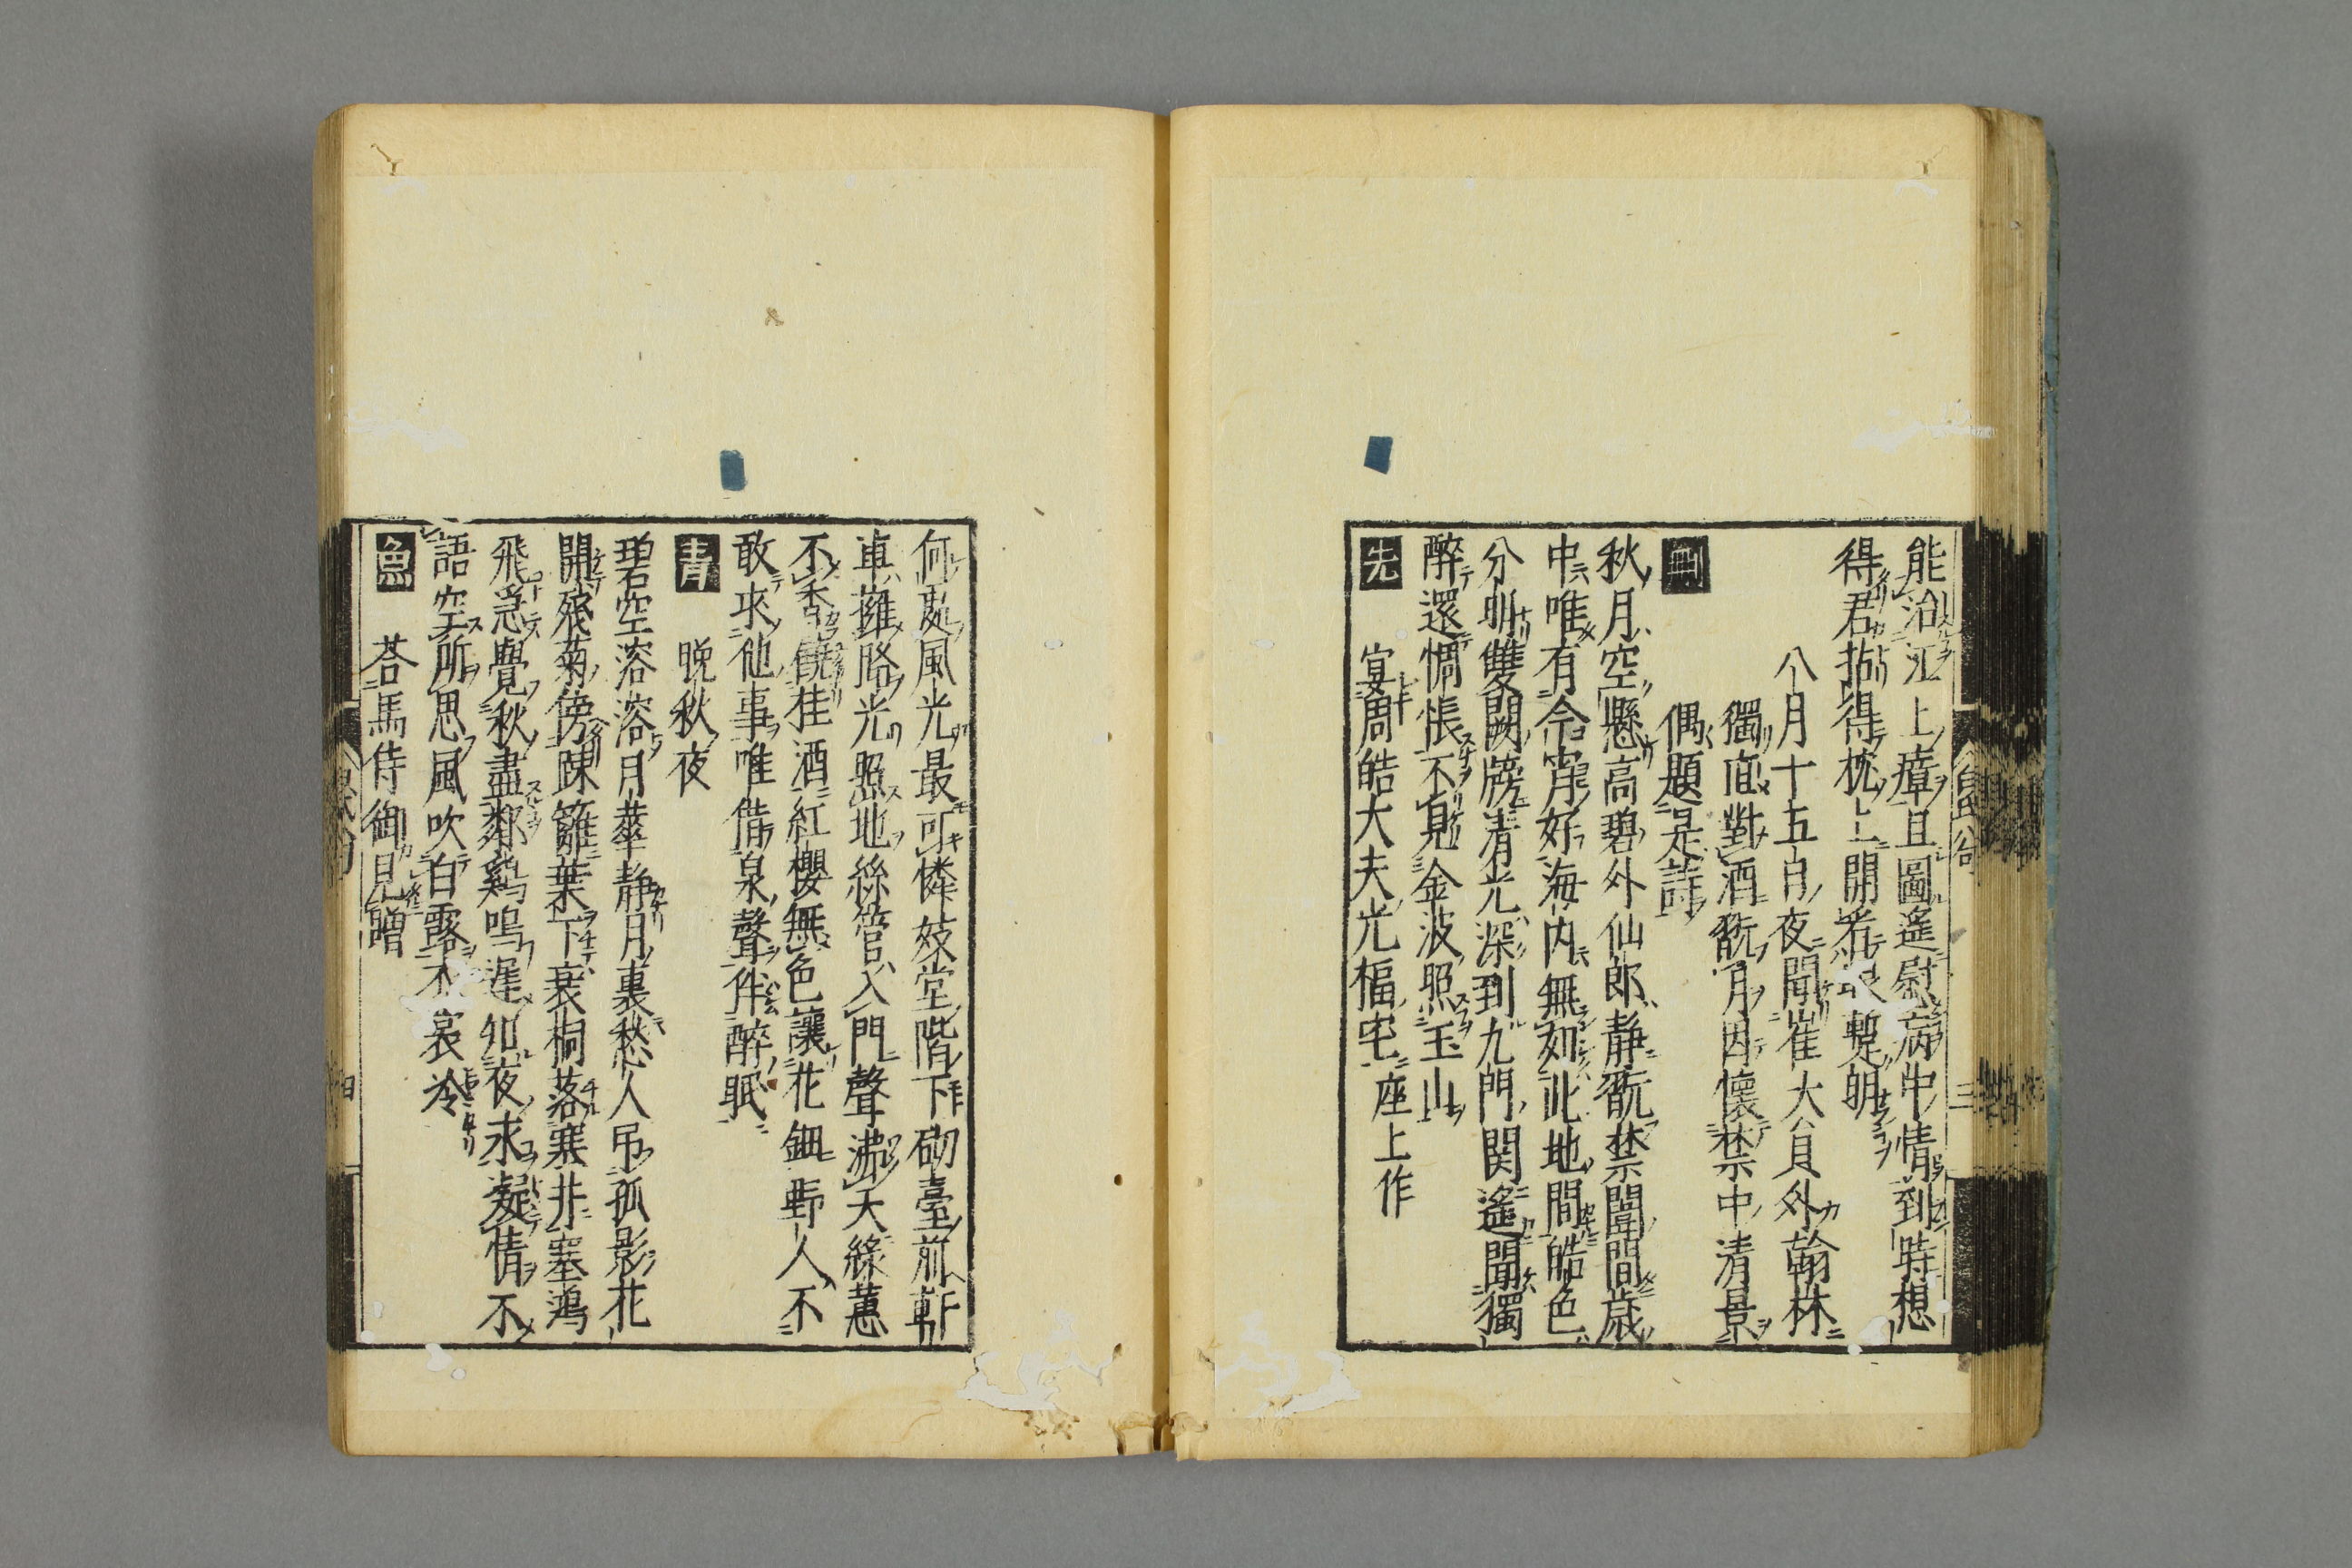 能治江上瘴且圖遙慰病中情到時想
得君拈得枕上開看眼暫明
八月十五日夜聞崔大員外翰林
獨直對酒翫月因懷禁中清景
偶題是詩
刪
秋月空懸高碧外仙郎靜翫禁闈間歲
中唯有今宵好海内無如此地間皓色
分明雙闕牓清光深到九門関遙聞獨
醉還惆悵不見金波照玉山
先
宴周皓大夫光福宅座上作
何處風光最可憐妓堂階下砌臺前軒
車擁路光照地絲管入門聲沸天綠蕙
不香饒桂酒紅櫻無色讓花鈿野人不
敢求他事唯借泉聲伴醉眠
青
晚秋夜
碧空溶溶月華靜月裏愁人吊孤影花
開殘菊傍踈籬葉下衰桐落寒井塞鴻
飛急覺秋盡鄰雞鳴遲知夜永凝情不
語空所思風吹白露衣裳冷
魚
荅馬侍御見贈